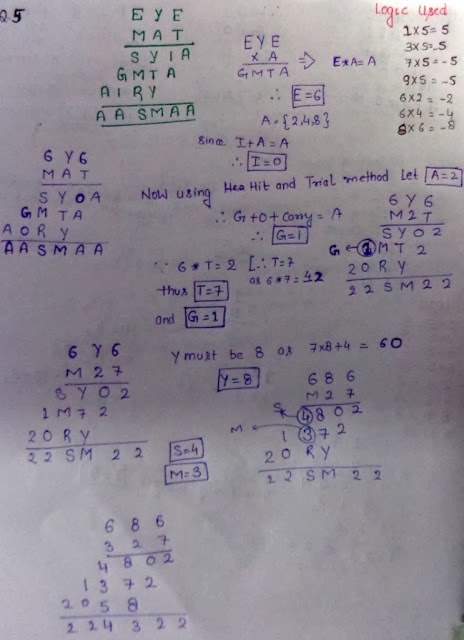 25
Logic Used
1x5 = 5
3x5=-5
7x5 = -5
9x5 = -5
6x2 = -2
6x4 = -4
8x6 = -8
E Y E
M A T
S Y I A
G M T A
A I R Y
A A S M A A
E Y E
x A
G M T A
=> E*A=A
∴ E=6
A = {2,4,8}
since I+A = A
∴ I=0
6 Y 6
M A T
S Y 0 A
G M T A
A 0 R Y
A A S M A A
Now using Hit and Trial method Let A=2
∴ G+0+carry = A
∴ G=1
6 Y 6
M 2 T
S Y 0 2
G ← 1 M T 2
2 0 R Y
2 2 S M 2 2
∵ 6 * T = 2 [∴ T=7
as 6*7 = 42
thus T=7
and G=1
6 Y 6
M 2 7
S Y 0 2
1 M 7 2
2 0 R Y
2 2 S M 2 2
Y must be 8 as 7x8+4 = 60
Y=8
6 8 6
M 2 7
S ← 4 8 0 2
M ← 1 3 7 2
2 0 R Y
2 2 S M 2 2
S=4
M=3
6 8 6
3 2 7
4 8 0 2
1 3 7 2
2 0 5 8
2 2 4 3 2 2